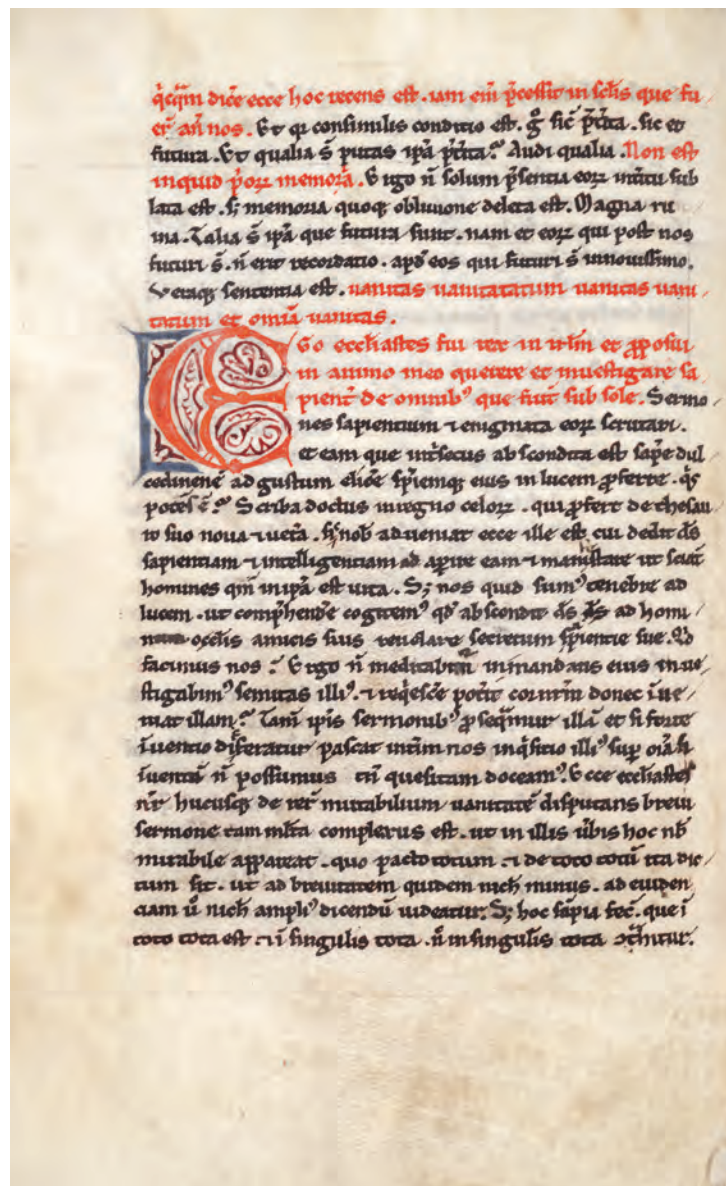 q̇cq̄m dic̄e ecce hoc recens est. iam eni᷑ p̄cessit in sc̄lis que fu
er̄ an̄ nos. Et qr consimilis conditio est. g̊ sic p̄t̄ita. sic et
futura. Et qualia s̄ putas ip̄a p̄t̄ita? Audi qualia. Non est
inquid p̄oꝝ memor̄a. Ergo n̄ solum p̄sentia eoꝝ intuitu sub
lata est. sꝫ memoria quoqꝫ obliuione deleta est. Magna ru
ina. Talia s̄ ip̄a que futura sunt. nam et eoꝝ qui post nos
futuri s̄. n̄ erit recordatio. apd̄ eos qui futuri s̄ in nouissimo.
Veraqꝫ sententia est. uanitas uanitatatum uanitas uani
tatum et omīa uanitas.
EGo eccl̄iastes fui rex in irl̄m et ꝓposui
in animo meo querere et inuestigare sa
pient̄ de omnibꝰ que fiūt sub sole. Sermo
nes sapientium ⁊ enigmata eoꝝ scrutari.
et eam que int̄secus abscondita est sap̄e dul
cedinem̄ ad gustum elic̄e sp̄iemqꝫ eius in lucem ꝓferre. q̄s
potens ē? Scriba doctus in regno celoꝝ. qui ꝓfert de thesau
ro suo noua ⁊ uet̄a. si nob̄ adueniat ecce ille est cui dedit d̄s
sapientiam ⁊ intelligentiam ad aꝑire eam ⁊ manifestare ut sciāt
homines qm̄ in ip̄a est uita. Sꝫ nos quid sumꝰ tenebre ad
lucem. ut comp̄hend̄e cogitemꝰ qd̄ abscondit d̄s ad homi
num oc̄lis amicis suis reuelare secretum sp̄ientie sue. Qd̄
facimus nos? Ergo n̄ meditabim̄ in mandatis eius inue
stigabimꝰ semitas illiꝰ. ⁊ req̇esc̄e pot̄it cor nr̄m donec īue
niat illam? Tam̄ ip̄is sermonibꝰ ꝓseq̄mur illā et si forte
īuentio differatur pascat int̄im nos inq̇sitio illiꝰ suꝑ oīa si
īuentā n̄ possumus tn̄ quesitam doceamꝰ. Ecce eccl̄iastes
nr̄ hucusqꝫ de rer̄ mutabilium uanitatē disputans breui
sermone tam ml̄ta complexus est. ut in illis ūbis hoc nb̄
mirabile appareat. quo pacto totum ⁊ de toto totū ita dic
tum sit. ut ad breuitatem quidem nich̄ minus. ad euiden
ciam ū nich̄ ampliꝰ dicendū uideatur. Sꝫ hoc sap̄ia fec̄. que ī
toto tota est ⁊ ī singulis tota. n̄ in singulis tota ↄt̄hitur.